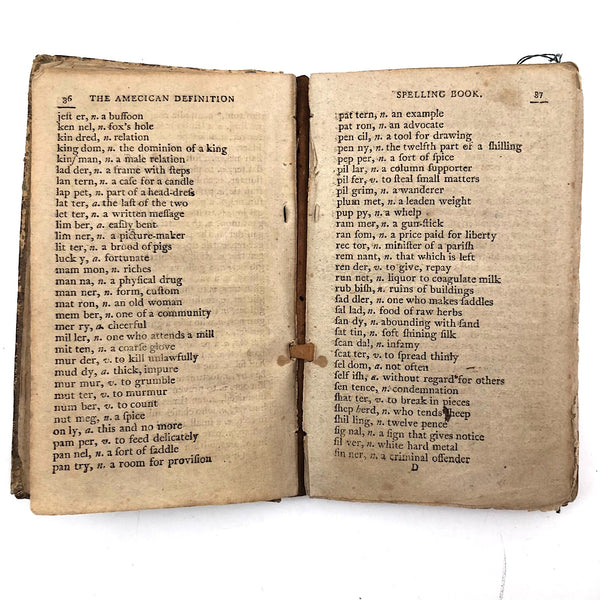 36 THE AMECICAN DEFINITION
jeſt er, n. a buffoon
ken nel, n. fox's hole
kin dred, n. relation
king dom, n. the dominion of a king
kinſ man, n. a male relation
lad der, n. a frame with ſteps
lan tern, n. a caſe for a candle
lap pet, n. part of a head-dreſs
lat ter, a. the laſt of the two
let ter, n. a written meſſage
lim ber, a. eaſily bent
lim ner, n. a picture-maker
lit ter, n. a brood of pigs
luck y, a. fortunate
mam mon, n. riches
man na, n. a phyſical drug
man ner, n. form, cuſtom
mat ron, n. an old woman
mem ber, n. one of a community
mer ry, a. cheerful
mil ler, n. one who attends a mill
mit ten, n. a coarſe glove
mur der, v. to kill unlawfully
mud dy, a. thick, impure
mur mur, v. to grumble
mut ter, v. to murmur
num ber, v. to count
nut meg, n. a ſpice
on ly, a. this and no more
pam per, v. to feed delicately
pan nel, n. a ſort of ſaddle
pan try, n. a room for proviſion
SPELLING BOOK. 37
pat tern, n. an example
pat ron, n. an advocate
pen cil, n. a tool for drawing
pen ny, n. the twelfth part of a ſhilling
pep per, n. a ſort of ſpice
pil lar, n. a column ſupporter
pil fer, v. to ſteal ſmall matters
pil grim, n. a wanderer
plum met, n. a leaden weight
pup py, n. a whelp
ram mer, n. a gun-ſtick
ran ſom, n. a price paid for liberty
rec tor, n. miniſter of a pariſh
rem nant, n. that which is left
ren der, v. to give, repay
run net, n. liquor to coagulate milk
rub biſh, n. ruins of buildings
ſad dler, n. one who makes ſaddles
ſal lad, n. food of raw herbs
ſan dy, n. abounding with ſand
ſat tin, n. ſoft ſhining ſilk
ſcan dal, n. infamy
ſcat ter, v. to ſpread thinly
ſel dom, a. not often
ſelf iſh, a. without regard for others
ſen tence, n. condemnation
ſhat ter, v. to break in pieces
ſhep herd, n. who tends ſheep
ſhil ling, n. twelve pence
ſig nal, n. a ſign that gives notice
ſil ver, n. white hard metal
ſin ner, n. a criminal offender
D